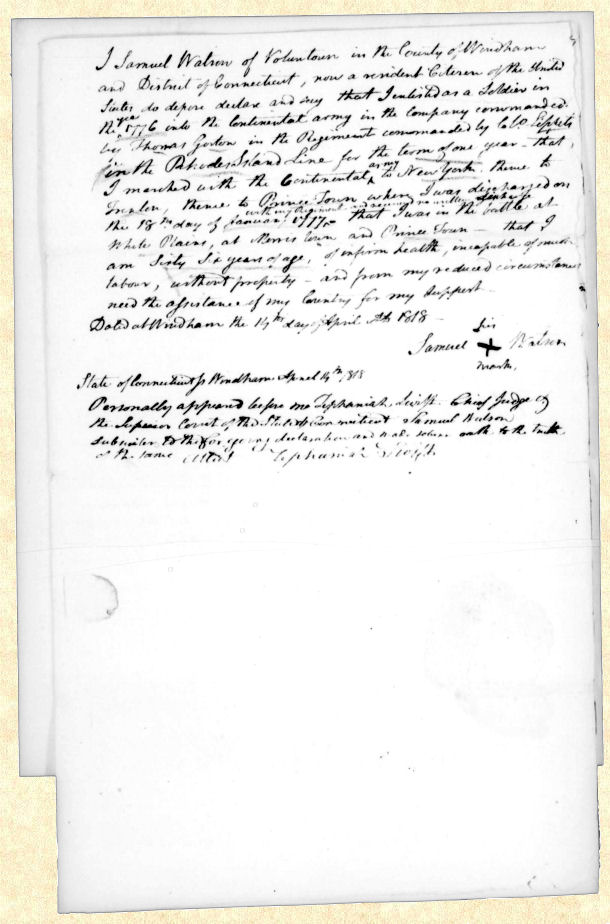 I Samuel Watson of Voluntown in the County of Windham
and District of Connecticut, now a resident Citizen of the United
States do depose declare and say that I enlisted as a Soldier in
the year 1776 into the Continental army in the Company commanded
by Thomas Gorton in the Regiment commanded by Col. Lippits
in the Rhode Island Line for the term of one year - that
I marched with the Continental army to New York. thence to
Trenton, thence to Prince Town where I was discharged on
the 18th day of January 1777 with my Regiment and received no written discharge
that I was in the battle at
White Plains, at Morris town and Prince Town - that I
am Sixty Six years of age, of infirm health, incapable of much
labour, without property - and from my reduced circumstances
need the assistance of my Country for my support.
Dated at Windham the 14th day of April 1818 -
his
Samuel + Watson
mark,
State of Connecticut ss Windham April 14th, 1818
Personally appeared before me Zephaniah Swift Chief Judge of
the Superior Court of the State of Connecticut Samuel Watson
subscriber to the foregoing declaration and made solemn oath to the truth
of the same Attest Zephaniah Swift